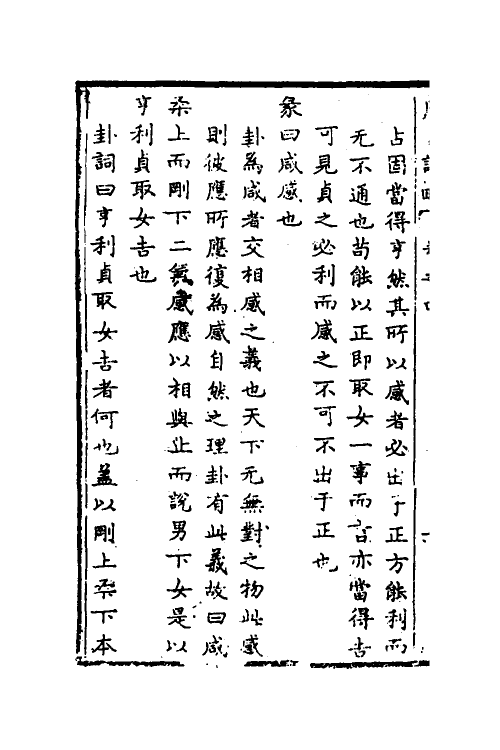 占固當得亨然其所以感者必出于正方能利而
无不通也苟能以正即取女一事而言亦當得吉
可見貞之必利而感之不可不出于正也
彖曰咸感也
卦為咸者交相感之義也天下无無對之物此感
則彼應所應復為感自然之理卦有此義故曰咸
柔上而剛下二氣感應以相與止而說男下女是以
亨利貞取女吉也
卦詞曰亨利貞取女吉者何也蓋以剛上柔下本